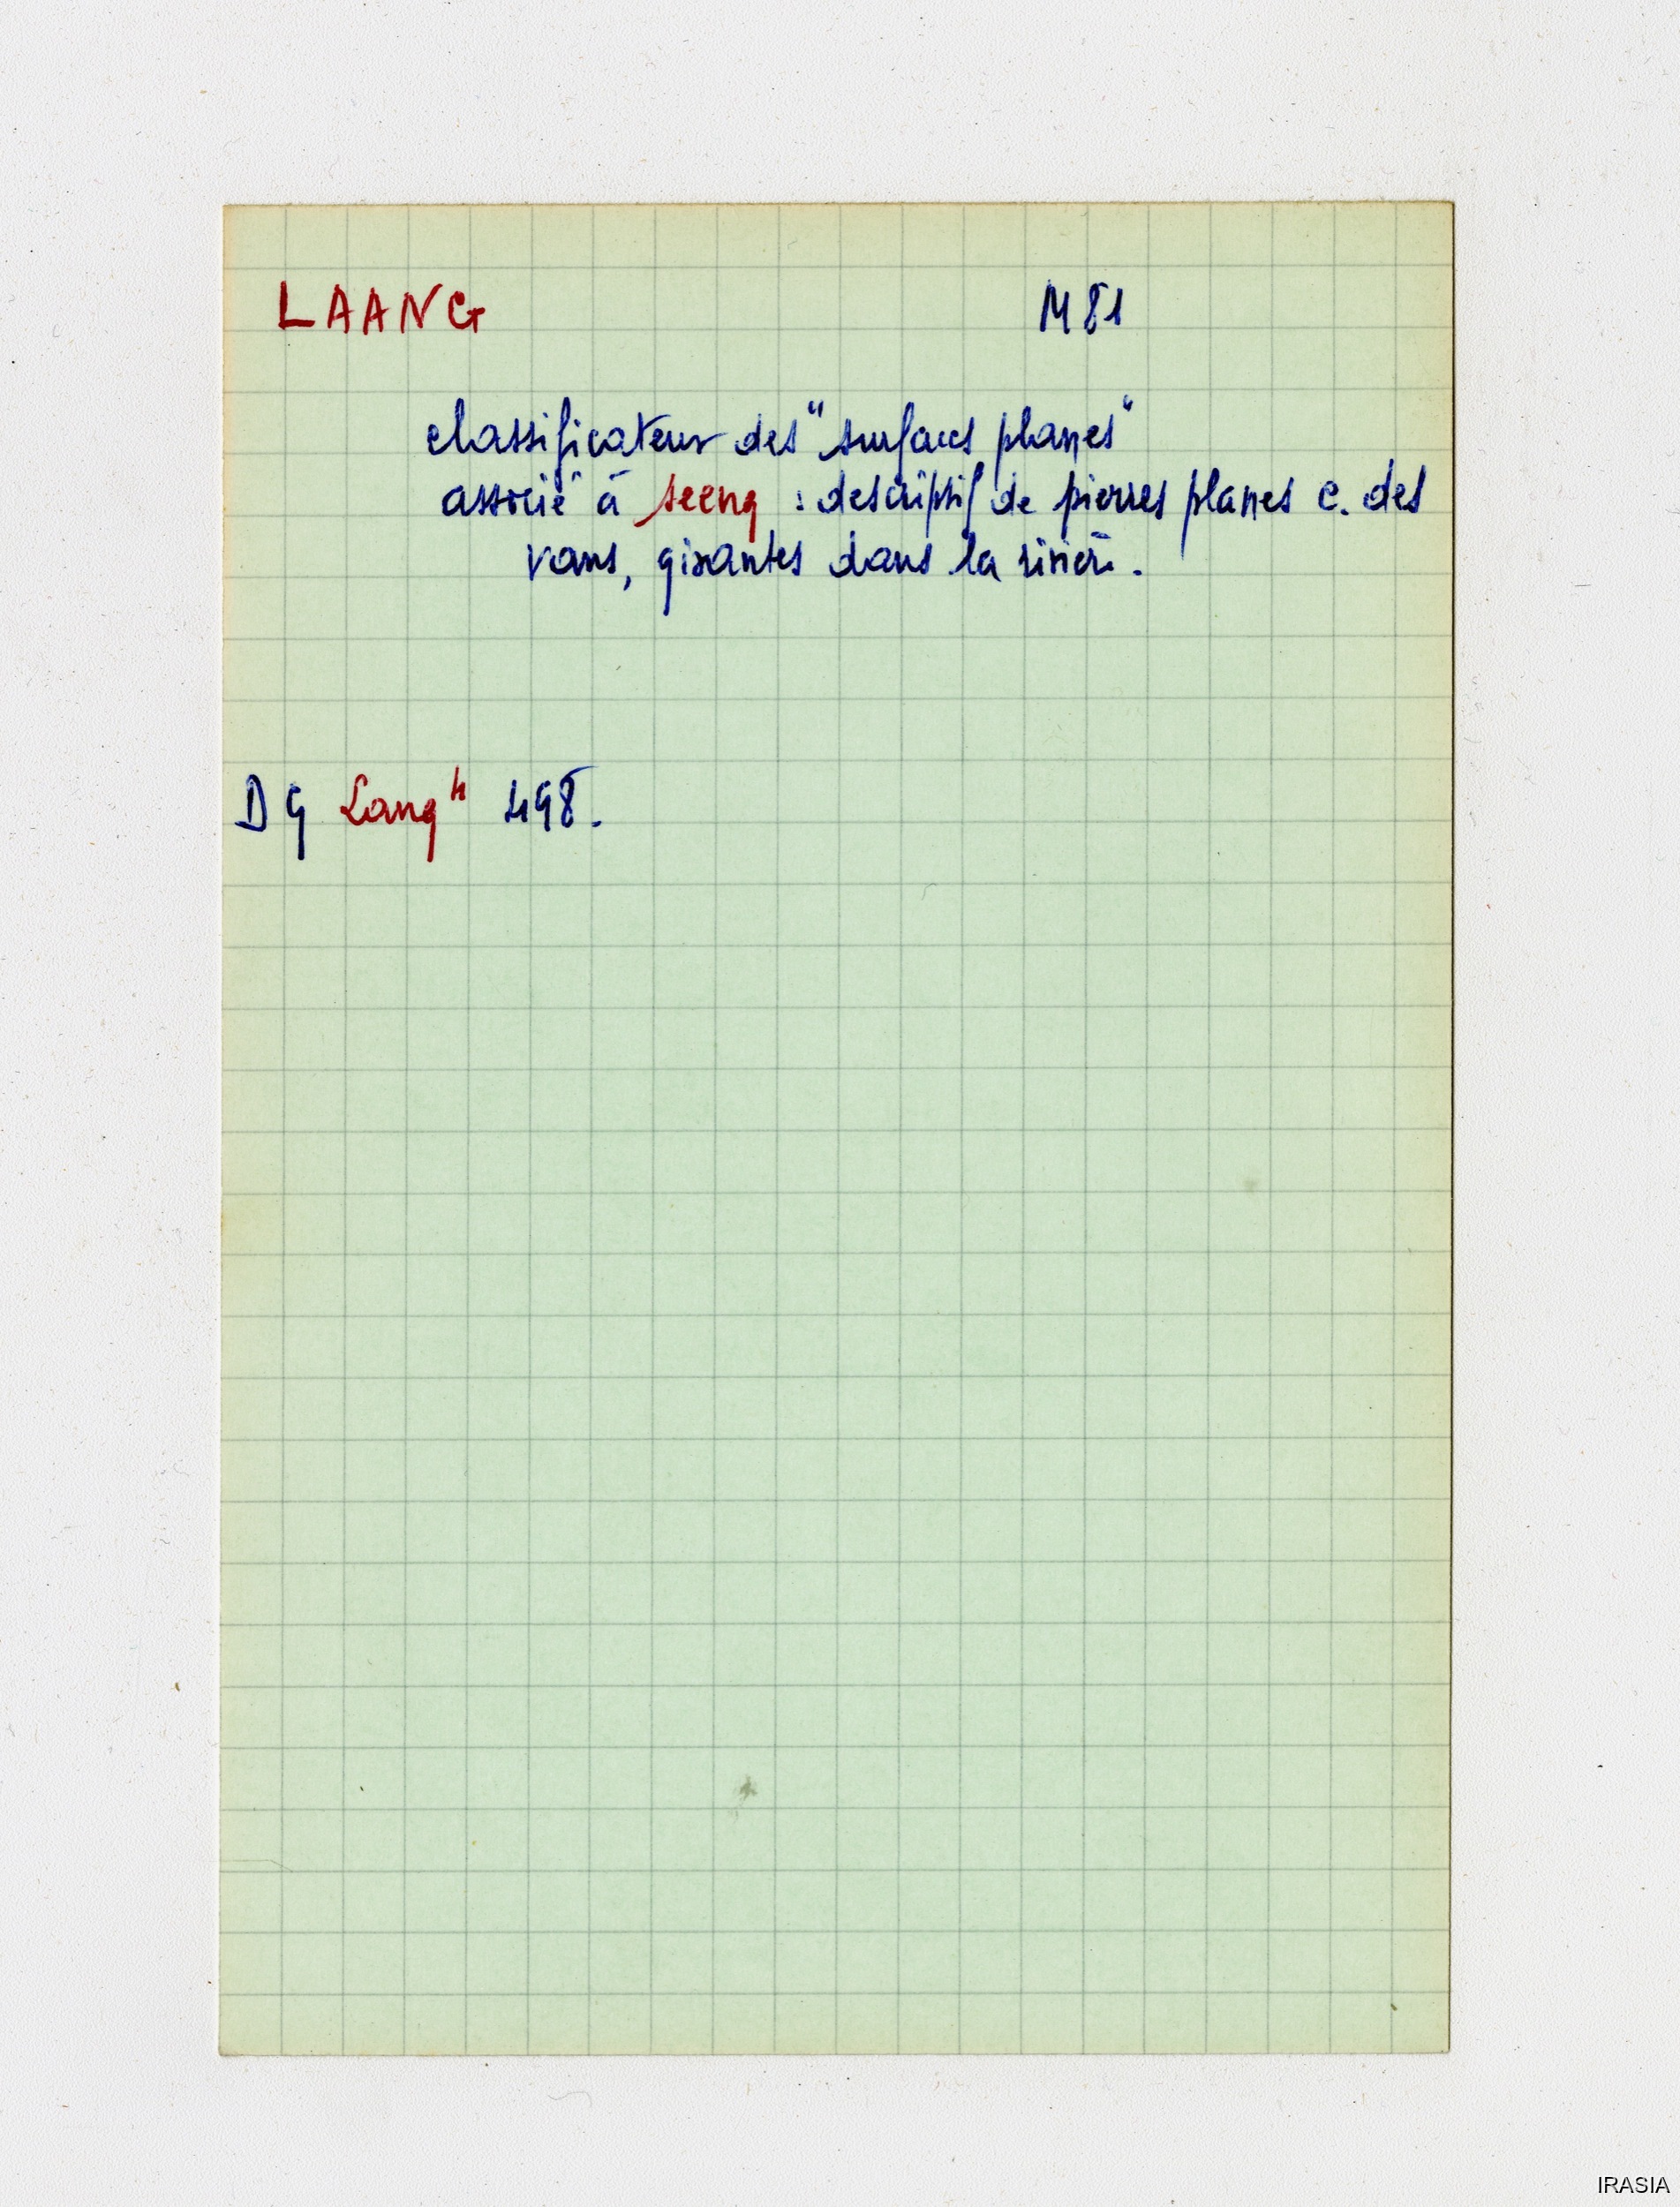 LAANG M81
classificateur des "surfaces planes"
associé à seeng : descriptif de pierres planes c. des
vans, gisantes dans la rivière.
DG Lang⁴ 498.
IRASIA